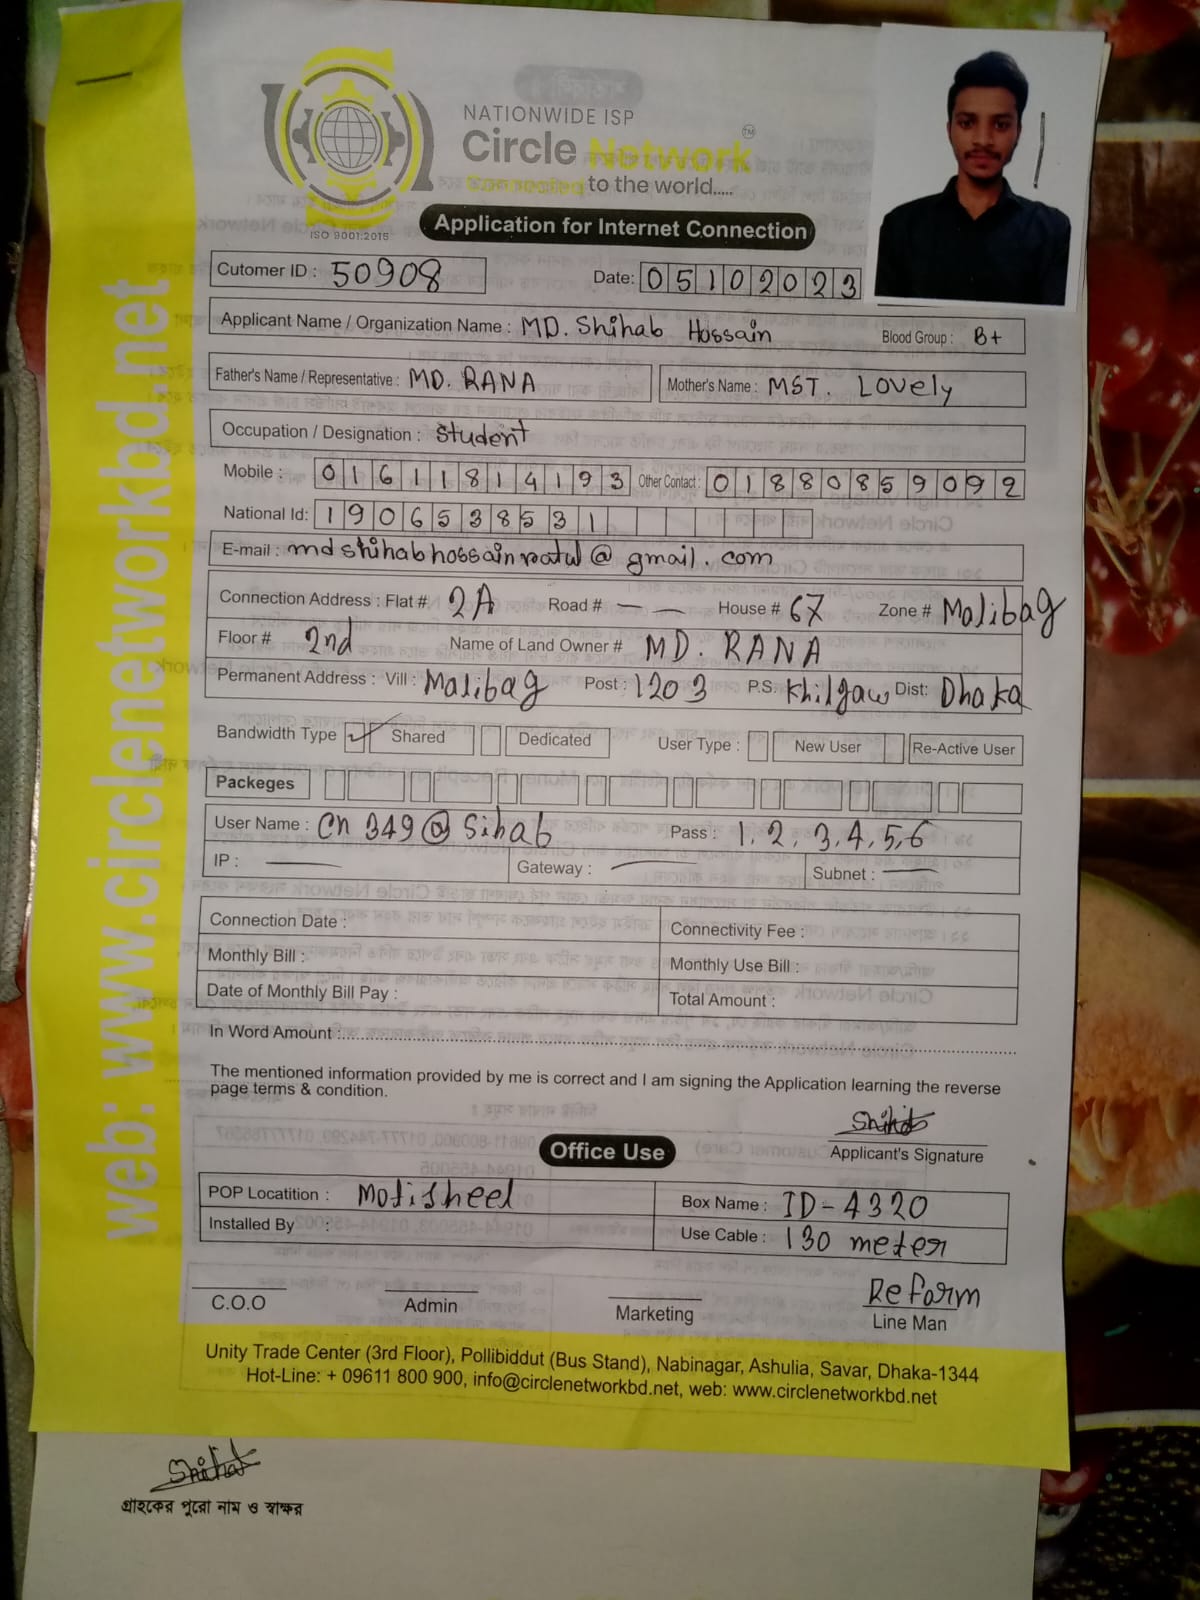 NATIONWIDE ISP
Circle Network™
to the world.....
ISO 9001:2015
Application for Internet Connection
web: www.circlenetworkbd.net
Cutomer ID : 50908 Date: 05102023
Applicant Name / Organization Name : MD. Shihab Hossain Blood Group : B+
Father's Name / Representative : MD. RANA Mother's Name : MST. Lovely
Occupation / Designation : Student
Mobile : 01611814193 Other Contact : 01880859092
National Id: 1906538531
E-mail : mdshihabhossainratul@gmail.com
Connection Address : Flat # 2A Road # — — House # 67 Zone # Malibag
Floor # 2nd Name of Land Owner # MD. RANA
Permanent Address : Vill : Malibag Post : 1203 P.S. Khilgaw Dist: Dhaka
Bandwidth Type ✓ Shared Dedicated User Type : New User Re-Active User
Packeges
User Name : Cn 349@Sihab Pass : 1,2,3,4,5,6
IP : — Gateway : — Subnet : —
Connection Date : Connectivity Fee :
Monthly Bill : Monthly Use Bill :
Date of Monthly Bill Pay : Total Amount :
In Word Amount :
The mentioned information provided by me is correct and I am signing the Application learning the reverse
page terms & condition.
Shihab
Applicant's Signature
Office Use
POP Locatition : Motisheel Box Name : ID-4320
Installed By : Use Cable : 130 meter
Reform
C.O.O Admin Marketing Line Man
Unity Trade Center (3rd Floor), Pollibiddut (Bus Stand), Nabinagar, Ashulia, Savar, Dhaka-1344
Hot-Line: + 09611 800 900, info@circlenetworkbd.net, web: www.circlenetworkbd.net
Shihab
গ্রাহকের পুরো নাম ও স্বাক্ষর